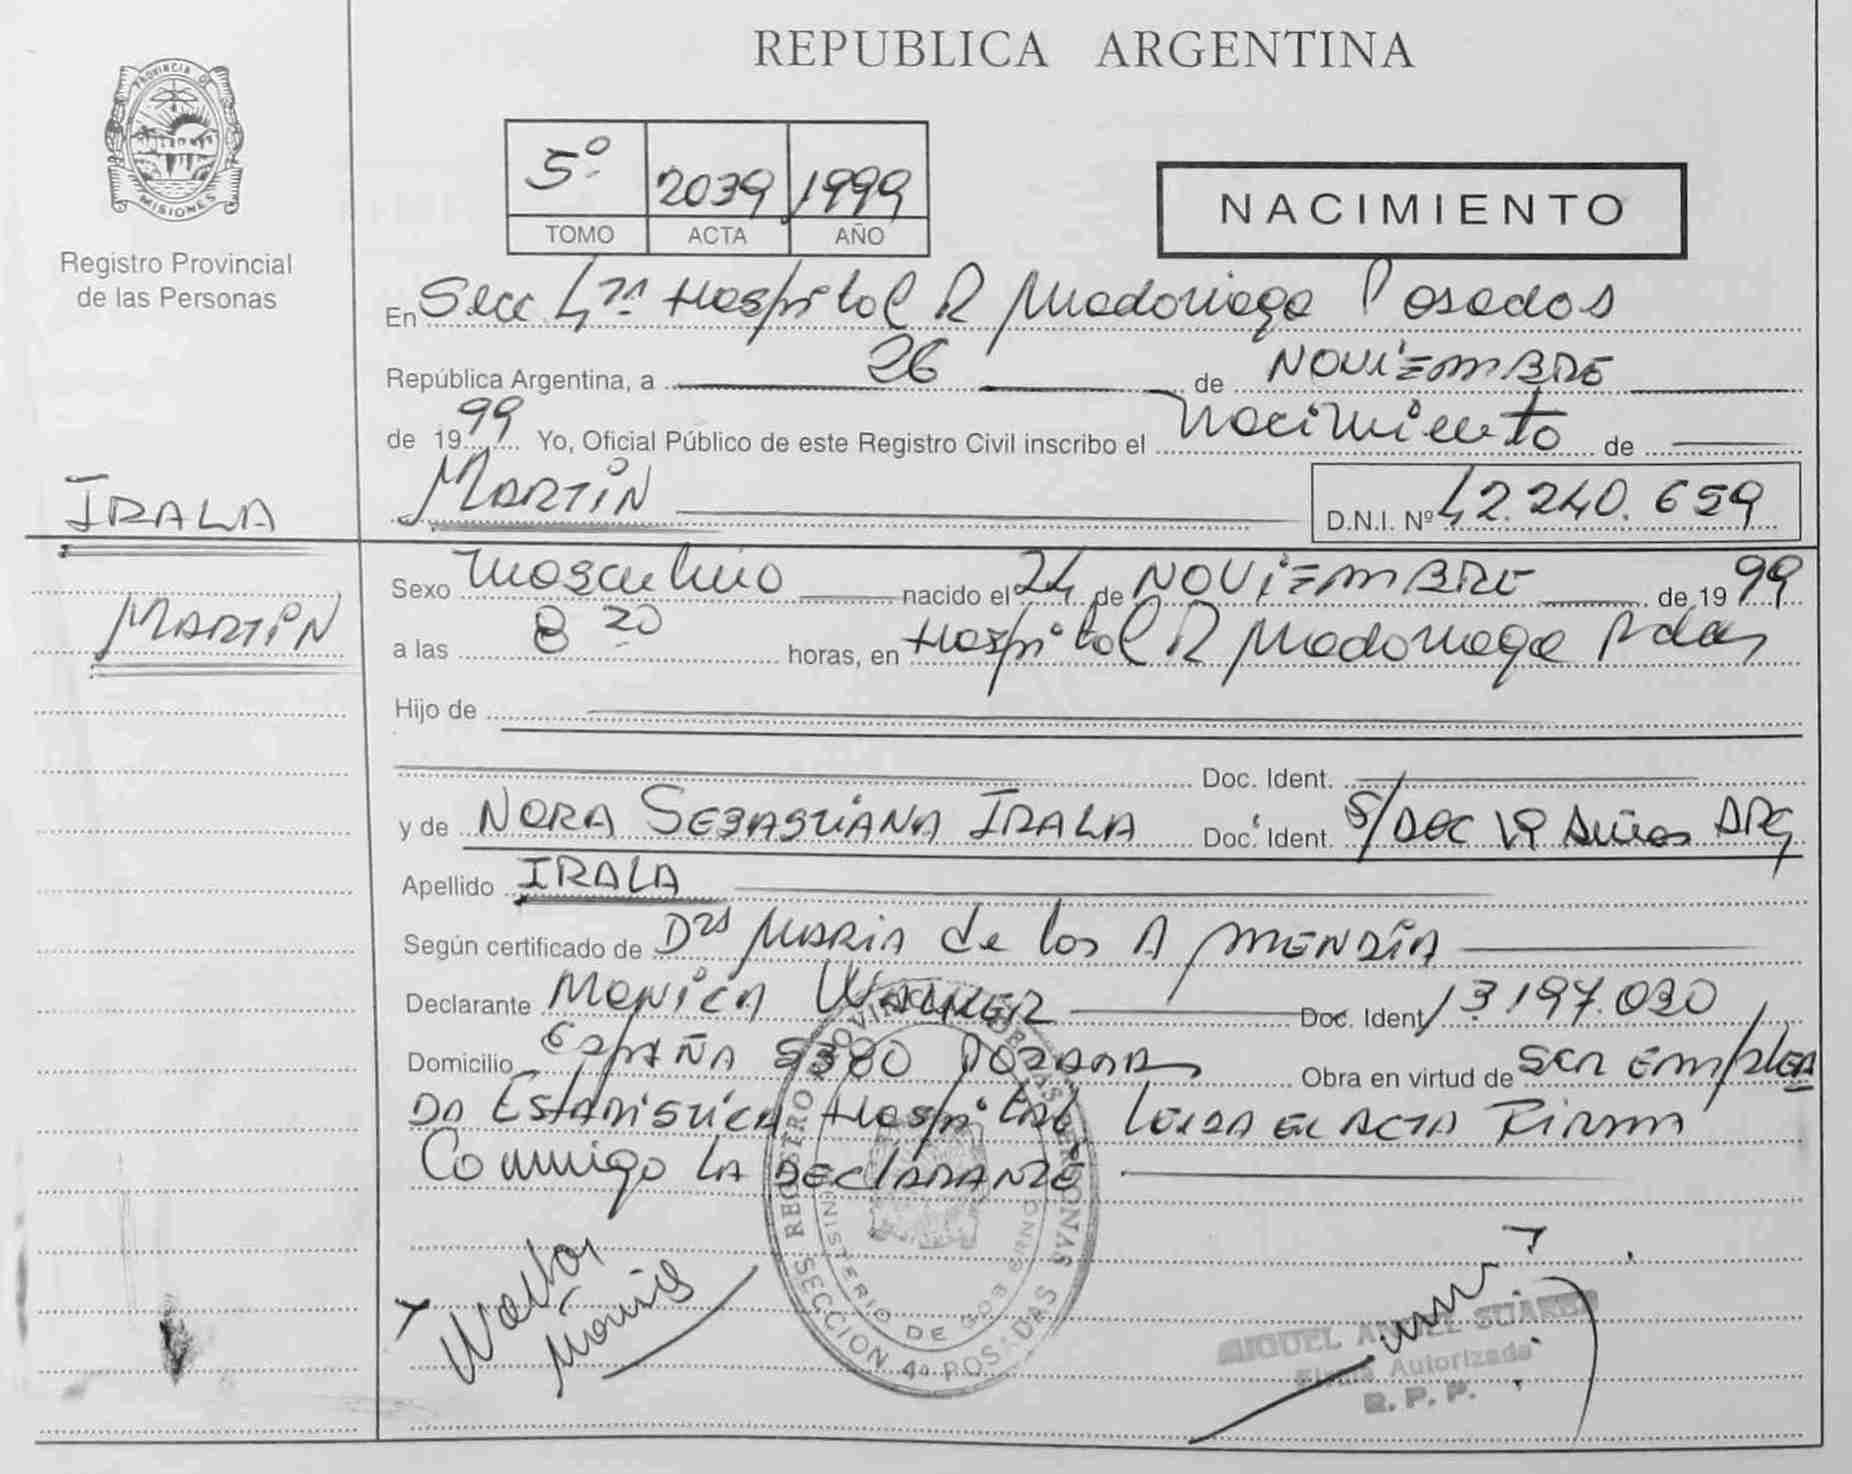 PROVINCIA DE
MISIONES
Registro Provincial
de las Personas
IRALA
MARTIN
REPUBLICA ARGENTINA
5º 2039 1999
TOMO ACTA AÑO
NACIMIENTO
En Secc 4ta Hospital R Madariaga Posadas
República Argentina, a 26 de NOVIEMBRE
de 1999 Yo, Oficial Público de este Registro Civil inscribo el Nacimiento de
MARTIN D.N.I. Nº 42.240.659
Sexo Masculino nacido el 24 de NOVIEMBRE de 1999
a las 8 20 horas, en Hospital R Madariaga Pdas
Hijo de
Doc. Ident.
y de NORA SEBASTIANA IRALA Doc. Ident. S/DOC 19 Años ARG
Apellido IRALA
Según certificado de Dra MARIA de los A MENDIA
Declarante MONICA Doc. Ident. 13.197.030
Domicilio ESPAÑA POSADAS Obra en virtud de SER EMPLEA
DA ESTADISTICA Hospital LEIDA EL ACTA FIRMA
Conmigo LA DECLARANTE
REGISTRO PROVINCIAL DE LAS PERSONAS
MINISTERIO DE GOBIERNO
SECCION 4a POSADAS
Monica
MIGUEL ANGEL SUAREZ
Firma Autorizada
R. P. P.